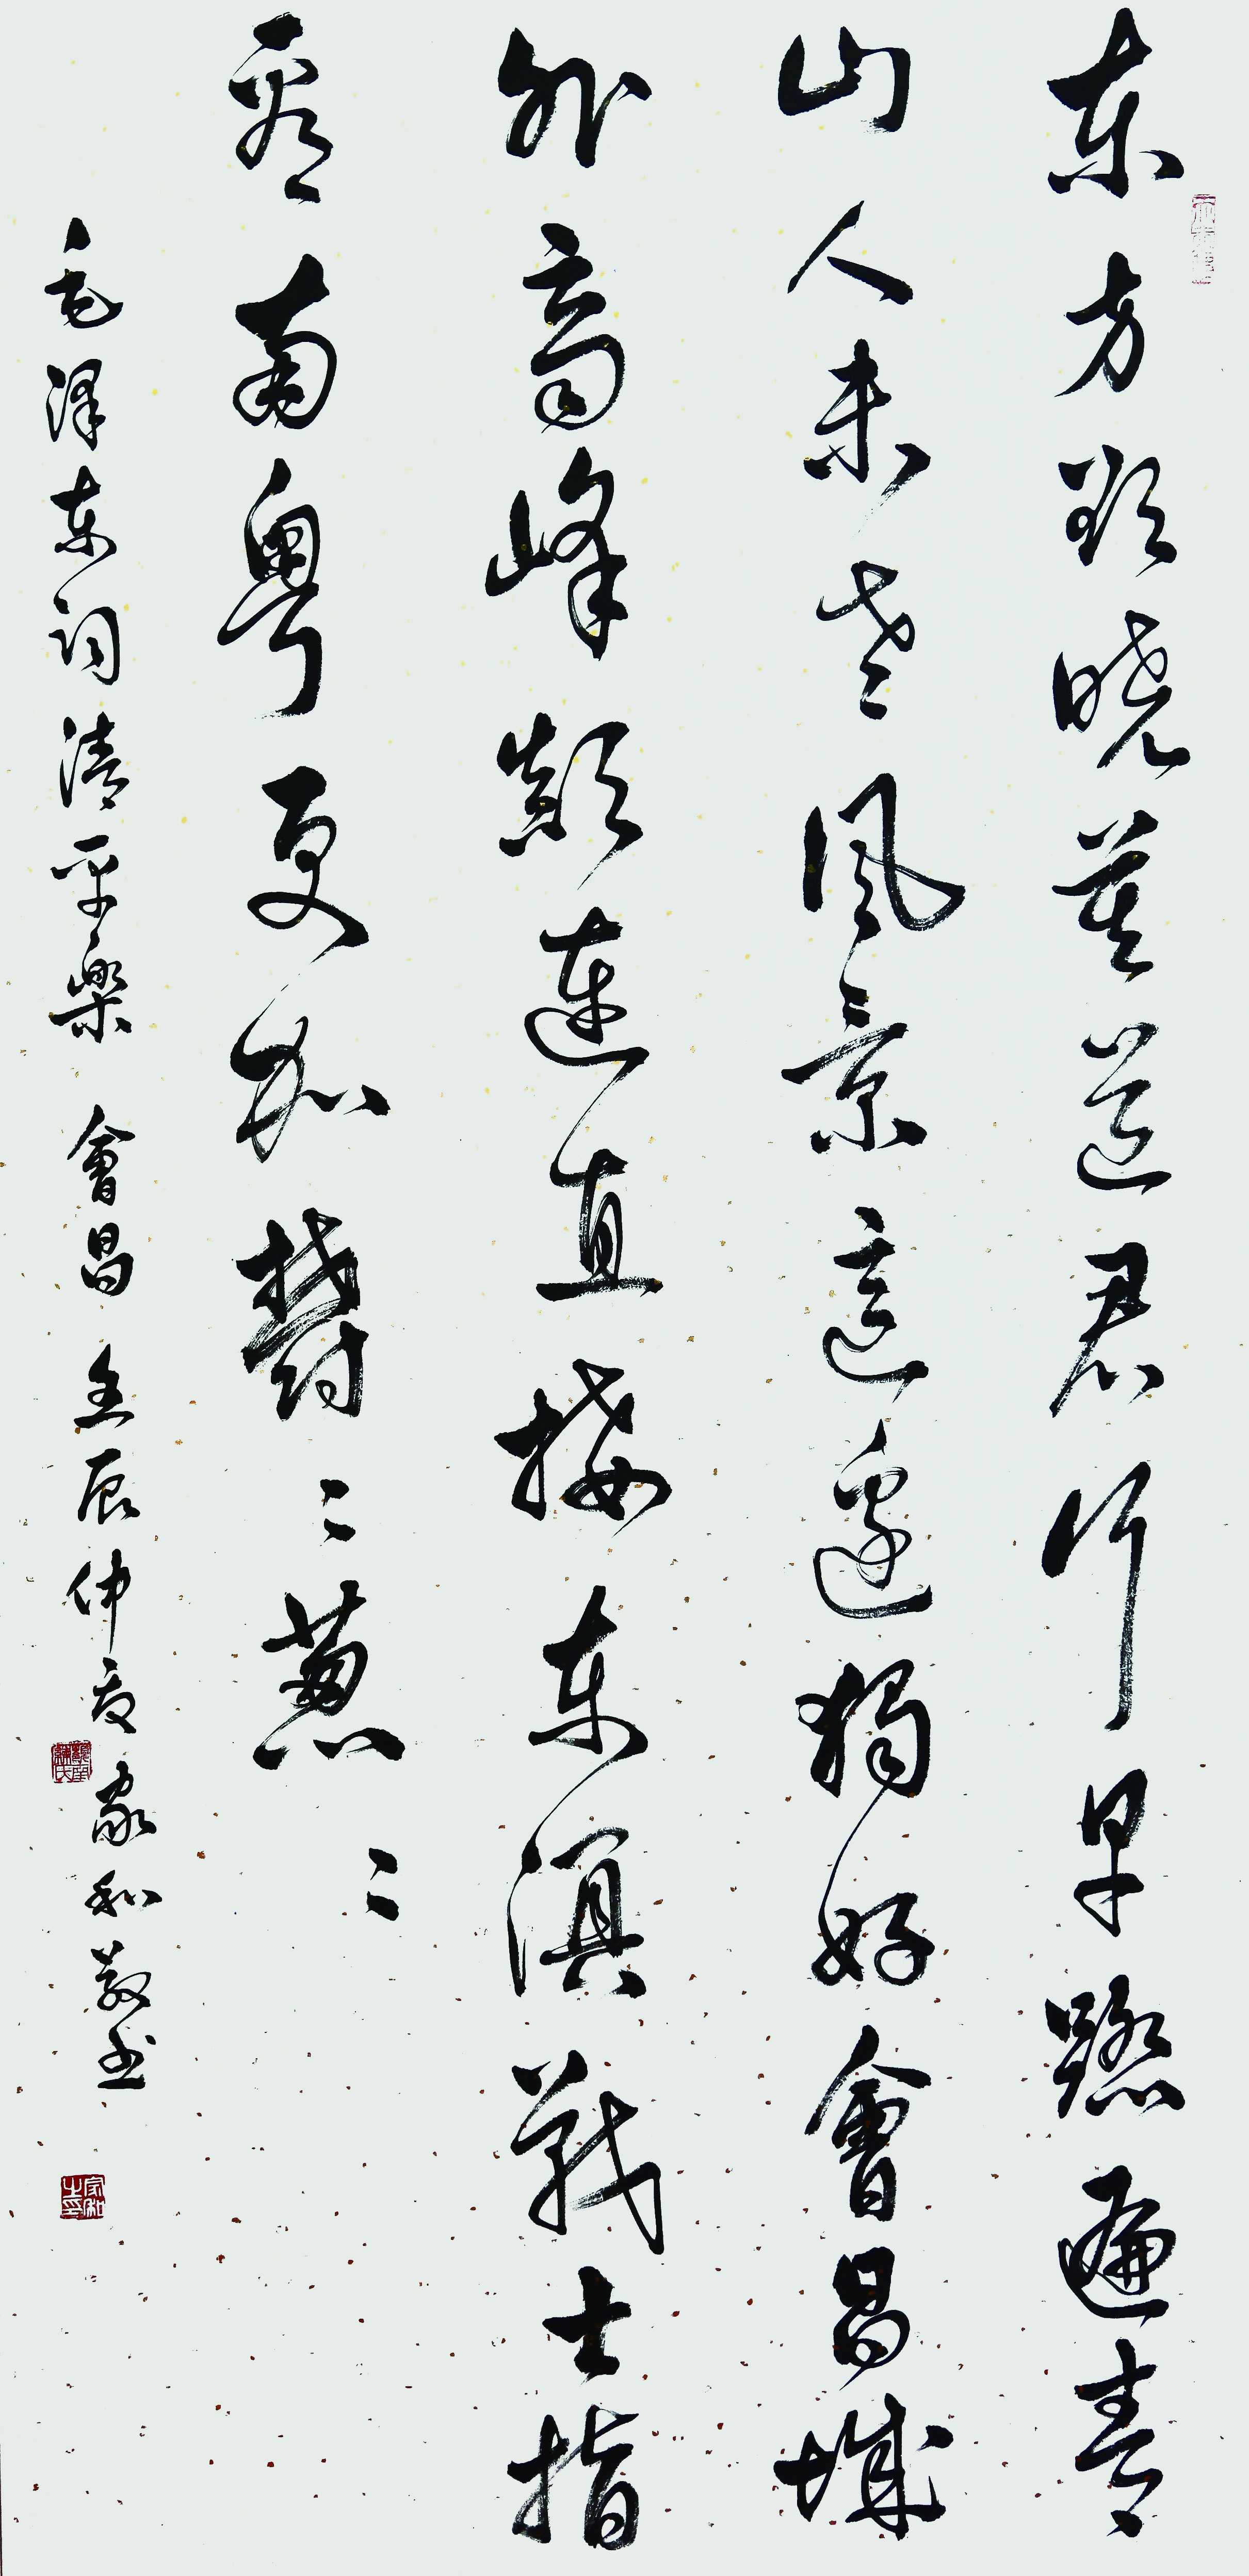 东方欲晓莫道君行早踏遍青
山人未老风景这邊獨好會昌城
外高峰颠连直接东溟战士指
看南粤更加鬱〻葱〻
毛泽东词清平樂 會昌 壬辰仲夏家和敬书
家和之印